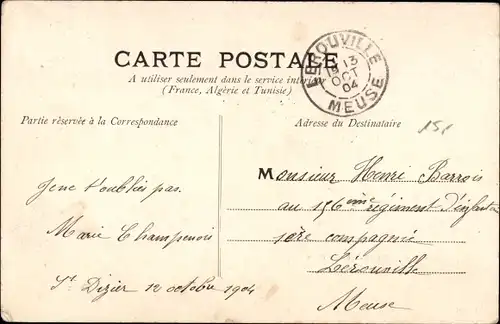 CARTE POSTALE
A utiliser seulement dans le service intérieur
(France, Algérie et Tunisie)
LEROUVILLE
13
OCT
04
MEUSE
Partie réservée à la Correspondance
Adresse du Destinataire
151
Je ne t'oublies pas.
Marie Champenois
St Dizier 12 octobre 1904
Monsieur Henri Barrois
au 156ème régiment d'infant
1ère compagnie
Lérouville
Meuse